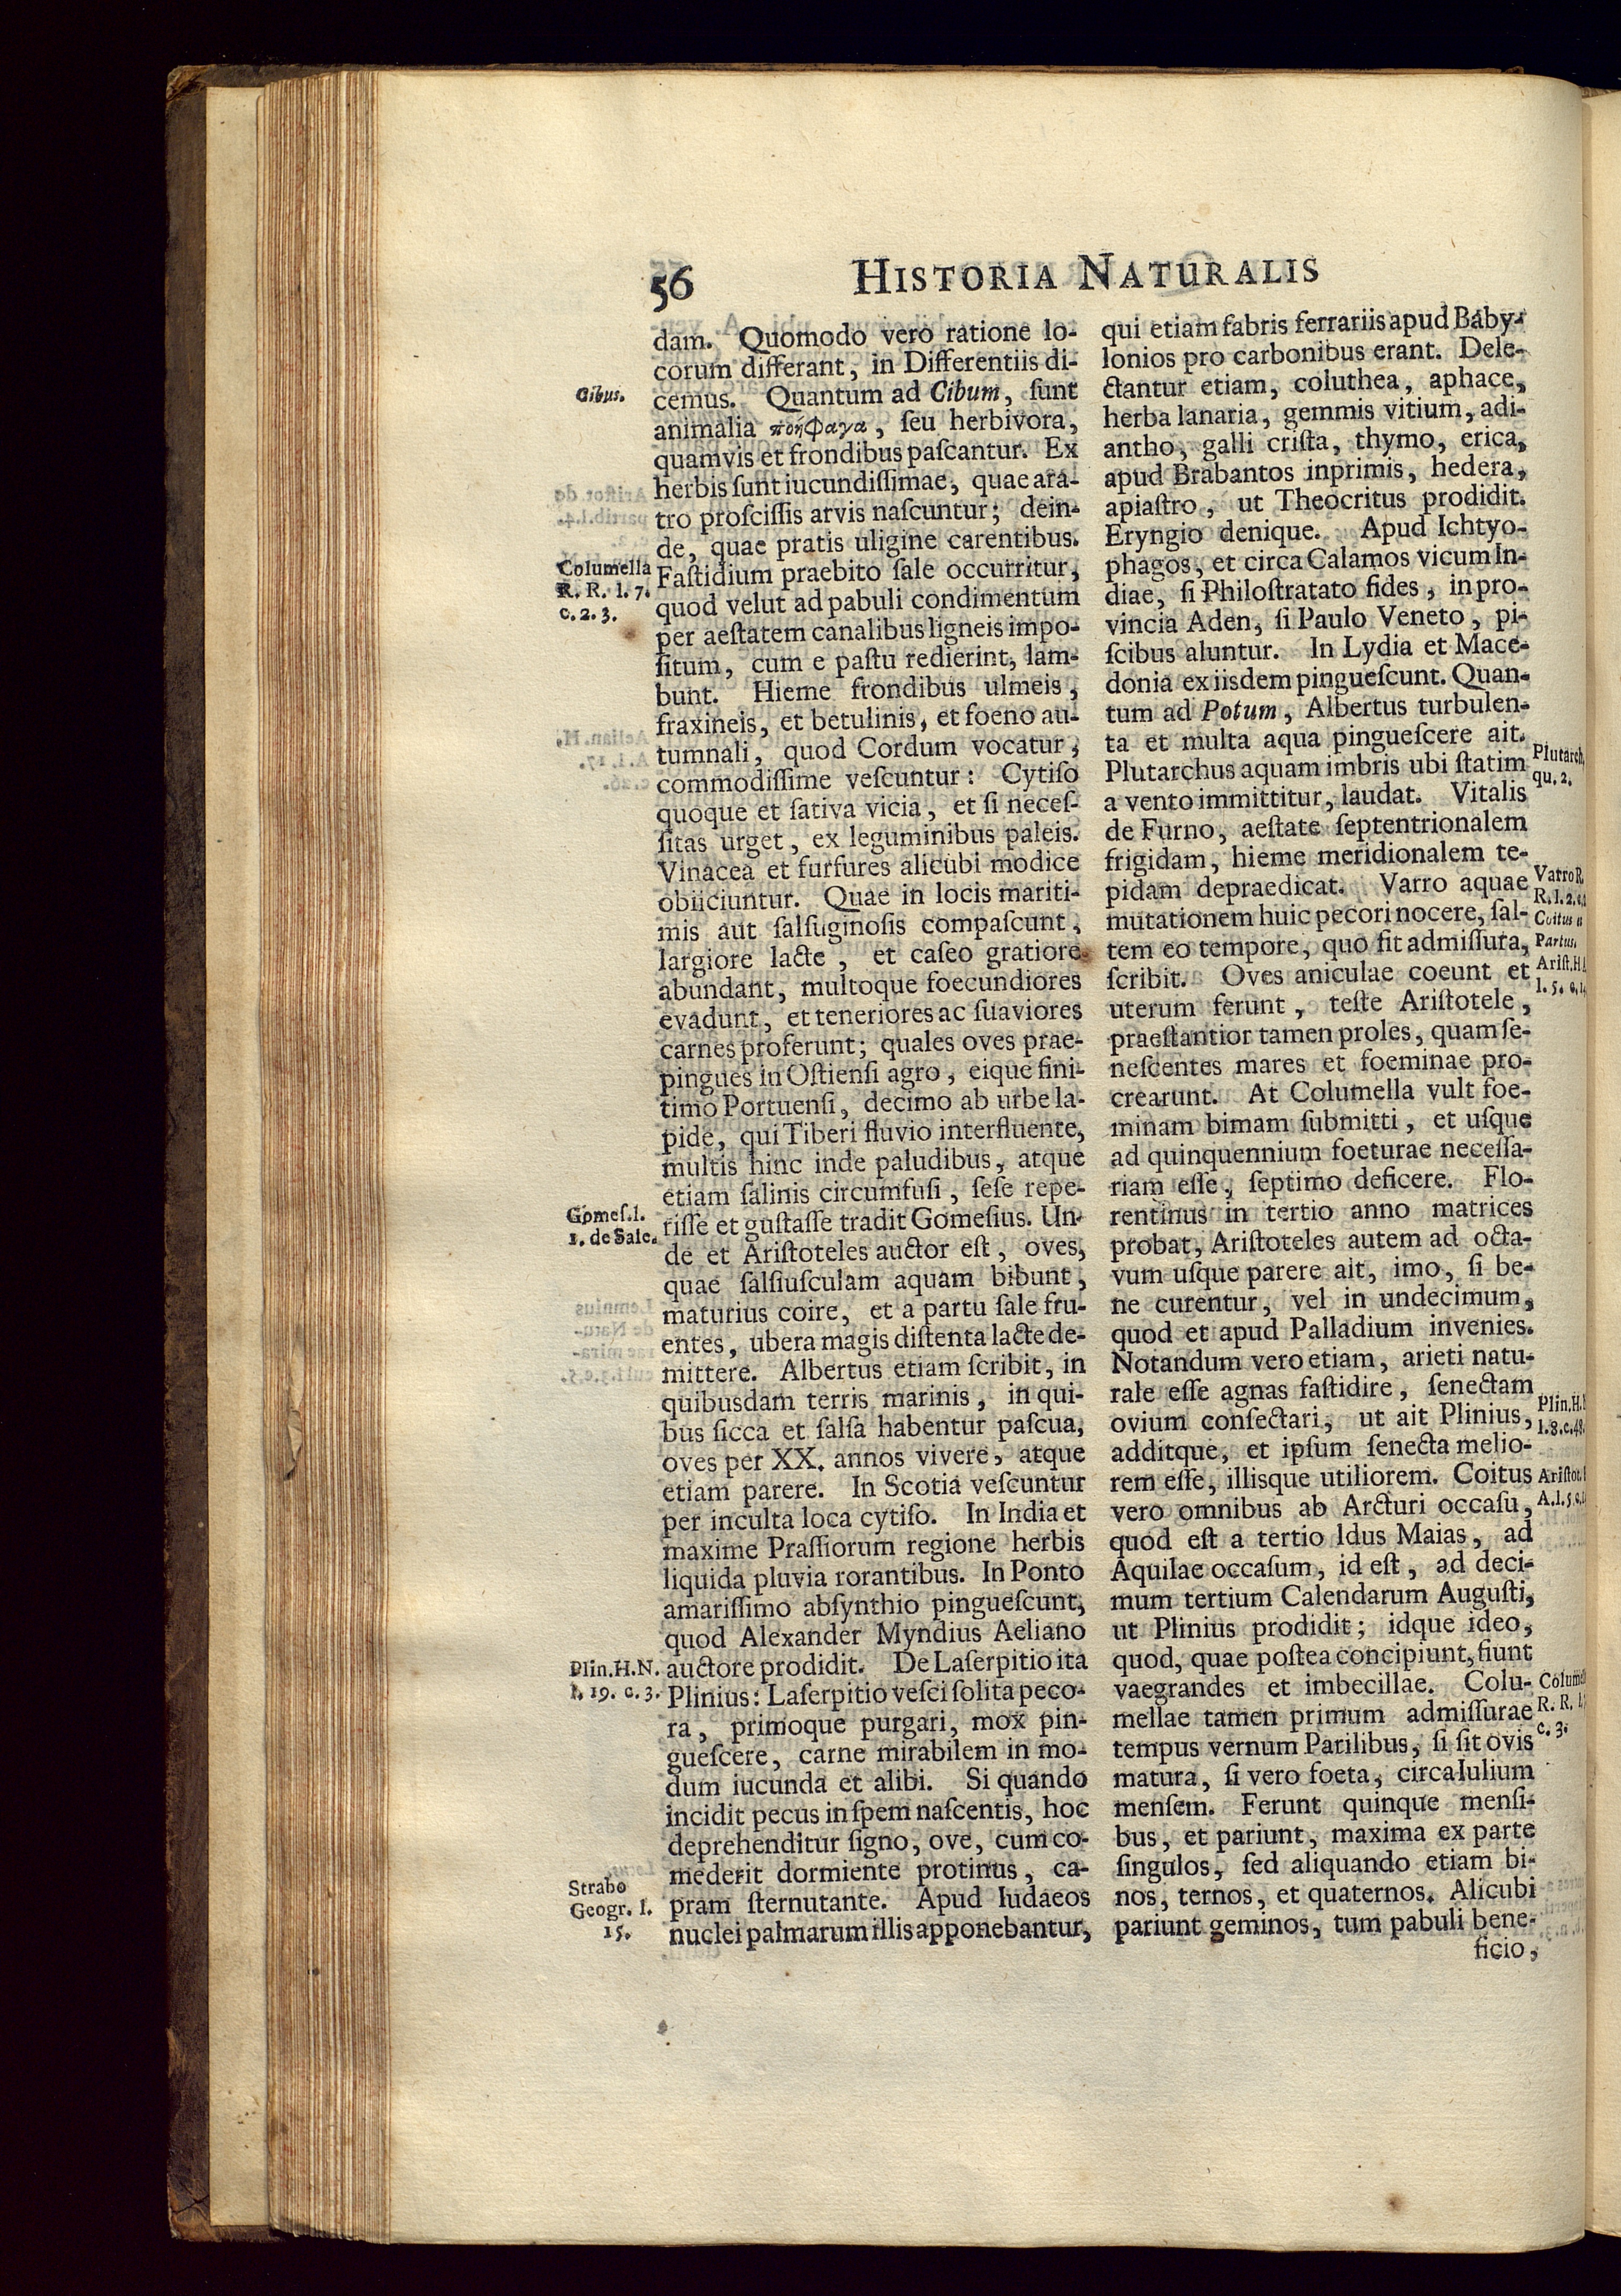 56 HISTORIA NATURALIS
dam. Quomodo vero ratione lo-
corum differant, in Differentiis di-
Cibus.
cemus. Quantum ad Cibum, ſunt
animalia ποηφαγα, ſeu herbivora,
quamvis et frondibus paſcantur. Ex
herbis ſunt iucundiſſimae, quae ara-
tro proſciſſis arvis naſcuntur; dein-
de, quae pratis uligine carentibus.
Columella
R. R. l. 7.
c. 2. 3.
Faſtidium praebito ſale occurritur,
quod velut ad pabuli condimentum
per aeſtatem canalibus ligneis impo-
ſitum, cum e paſtu redierint, lam-
bunt. Hieme frondibus ulmeis,
fraxineis, et betulinis, et foeno au-
tumnali, quod Cordum vocatur,
commodiſſime veſcuntur: Cytiſo
quoque et ſativa vicia, et ſi neceſ-
ſitas urget, ex leguminibus paleis.
Vinacea et furfures alicubi modice
obiiciuntur. Quae in locis mariti-
mis aut ſalſuginoſis compaſcunt,
largiore lacte, et caſeo gratiore
abundant, multoque foecundiores
evadunt, et teneriores ac ſuaviores
carnes proferunt; quales oves prae-
pingues in Oſtienſi agro, eique fini-
timo Portuenſi, decimo ab urbe la-
pide, qui Tiberi fluvio interfluente,
multis hinc inde paludibus, atque
etiam ſalinis circumfuſi, ſeſe repe-
Gomeſ. l.
1. de Sale.
riſſe et guſtaſſe tradit Gomeſius. Un-
de et Ariſtoteles auctor eſt, oves,
quae ſalſiuſculam aquam bibunt,
maturius coire, et a partu ſale fru-
entes, ubera magis diſtenta lacte de-
mittere. Albertus etiam ſcribit, in
quibusdam terris marinis, in qui-
bus ſicca et ſalſa habentur paſcua,
oves per XX. annos vivere, atque
etiam parere. In Scotia veſcuntur
per inculta loca cytiſo. In India et
maxime Praſſiorum regione herbis
liquida pluvia rorantibus. In Ponto
amariſſimo abſynthio pingueſcunt,
quod Alexander Myndius Aeliano
Plin. H. N.
l. 19. c. 3.
auctore prodidit. De Laſerpitio ita
Plinius: Laſerpitio veſci ſolita peco-
ra, primoque purgari, mox pin-
gueſcere, carne mirabilem in mo-
dum iucunda et alibi. Si quando
incidit pecus in ſpem naſcentis, hoc
deprehenditur ſigno, ove, cum co-
mederit dormiente protinus, ca-
Strabo
Geogr. l.
15.
pram ſternutante. Apud Iudaeos
nuclei palmarum illis apponebantur,
qui etiam fabris ferrariis apud Baby-
lonios pro carbonibus erant. Dele-
ctantur etiam, coluthea, aphace,
herba lanaria, gemmis vitium, adi-
antho, galli criſta, thymo, erica,
apud Brabantos inprimis, hedera,
apiaſtro, ut Theocritus prodidit.
Eryngio denique. Apud Ichtyo-
phagos, et circa Calamos vicum In-
diae, ſi Philoſtratato fides, in pro-
vincia Aden, ſi Paulo Veneto, pi-
ſcibus aluntur. In Lydia et Mace-
donia ex iisdem pingueſcunt. Quan-
tum ad Potum, Albertus turbulen-
ta et multa aqua pingueſcere ait.
Plutarch.
qu. 2.
Plutarchus aquam imbris ubi ſtatim
a vento immittitur, laudat. Vitalis
de Furno, aeſtate ſeptentrionalem
frigidam, hieme meridionalem te-
Varro R.
R. l. 2.
pidam depraedicat. Varro aquae
mutationem huic pecori nocere, ſal-
Coitus
Partus.
tem eo tempore, quo fit admiſſura,
Ariſt. H.
l. 5.
ſcribit. Oves aniculae coeunt et
uterum ferunt, teſte Ariſtotele,
praeſtantior tamen proles, quam ſe-
neſcentes mares et foeminae pro-
crearunt. At Columella vult foe-
minam bimam ſubmitti, et uſque
ad quinquennium foeturae neceſſa-
riam eſſe, ſeptimo deficere. Flo-
rentinus in tertio anno matrices
probat, Ariſtoteles autem ad octa-
vum uſque parere ait, imo, ſi be-
ne curentur, vel in undecimum,
quod et apud Palladium invenies.
Notandum vero etiam, arieti natu-
rale eſſe agnas faſtidire, ſenectam
Plin. H.
l. 8. c. 48.
ovium conſectari, ut ait Plinius,
additque, et ipſum ſenecta melio-
rem eſſe, illisque utiliorem. Coitus
Ariſtot.
A. l. 5.
vero omnibus ab Arcturi occaſu,
quod eſt a tertio Idus Maias, ad
Aquilae occaſum, id eſt, ad deci-
mum tertium Calendarum Auguſti,
ut Plinius prodidit; idque ideo,
quod, quae poſtea concipiunt, fiunt
vaegrandes et imbecillae. Colu-
R. R.
c. 3.
mellae tamen primum admiſſurae
tempus vernum Parilibus, ſi ſit ovis
matura, ſi vero foeta, circa Iulium
menſem. Ferunt quinque menſi-
bus, et pariunt, maxima ex parte
ſingulos, ſed aliquando etiam bi-
nos, ternos, et quaternos. Alicubi
pariunt geminos, tum pabuli bene-
ficio,